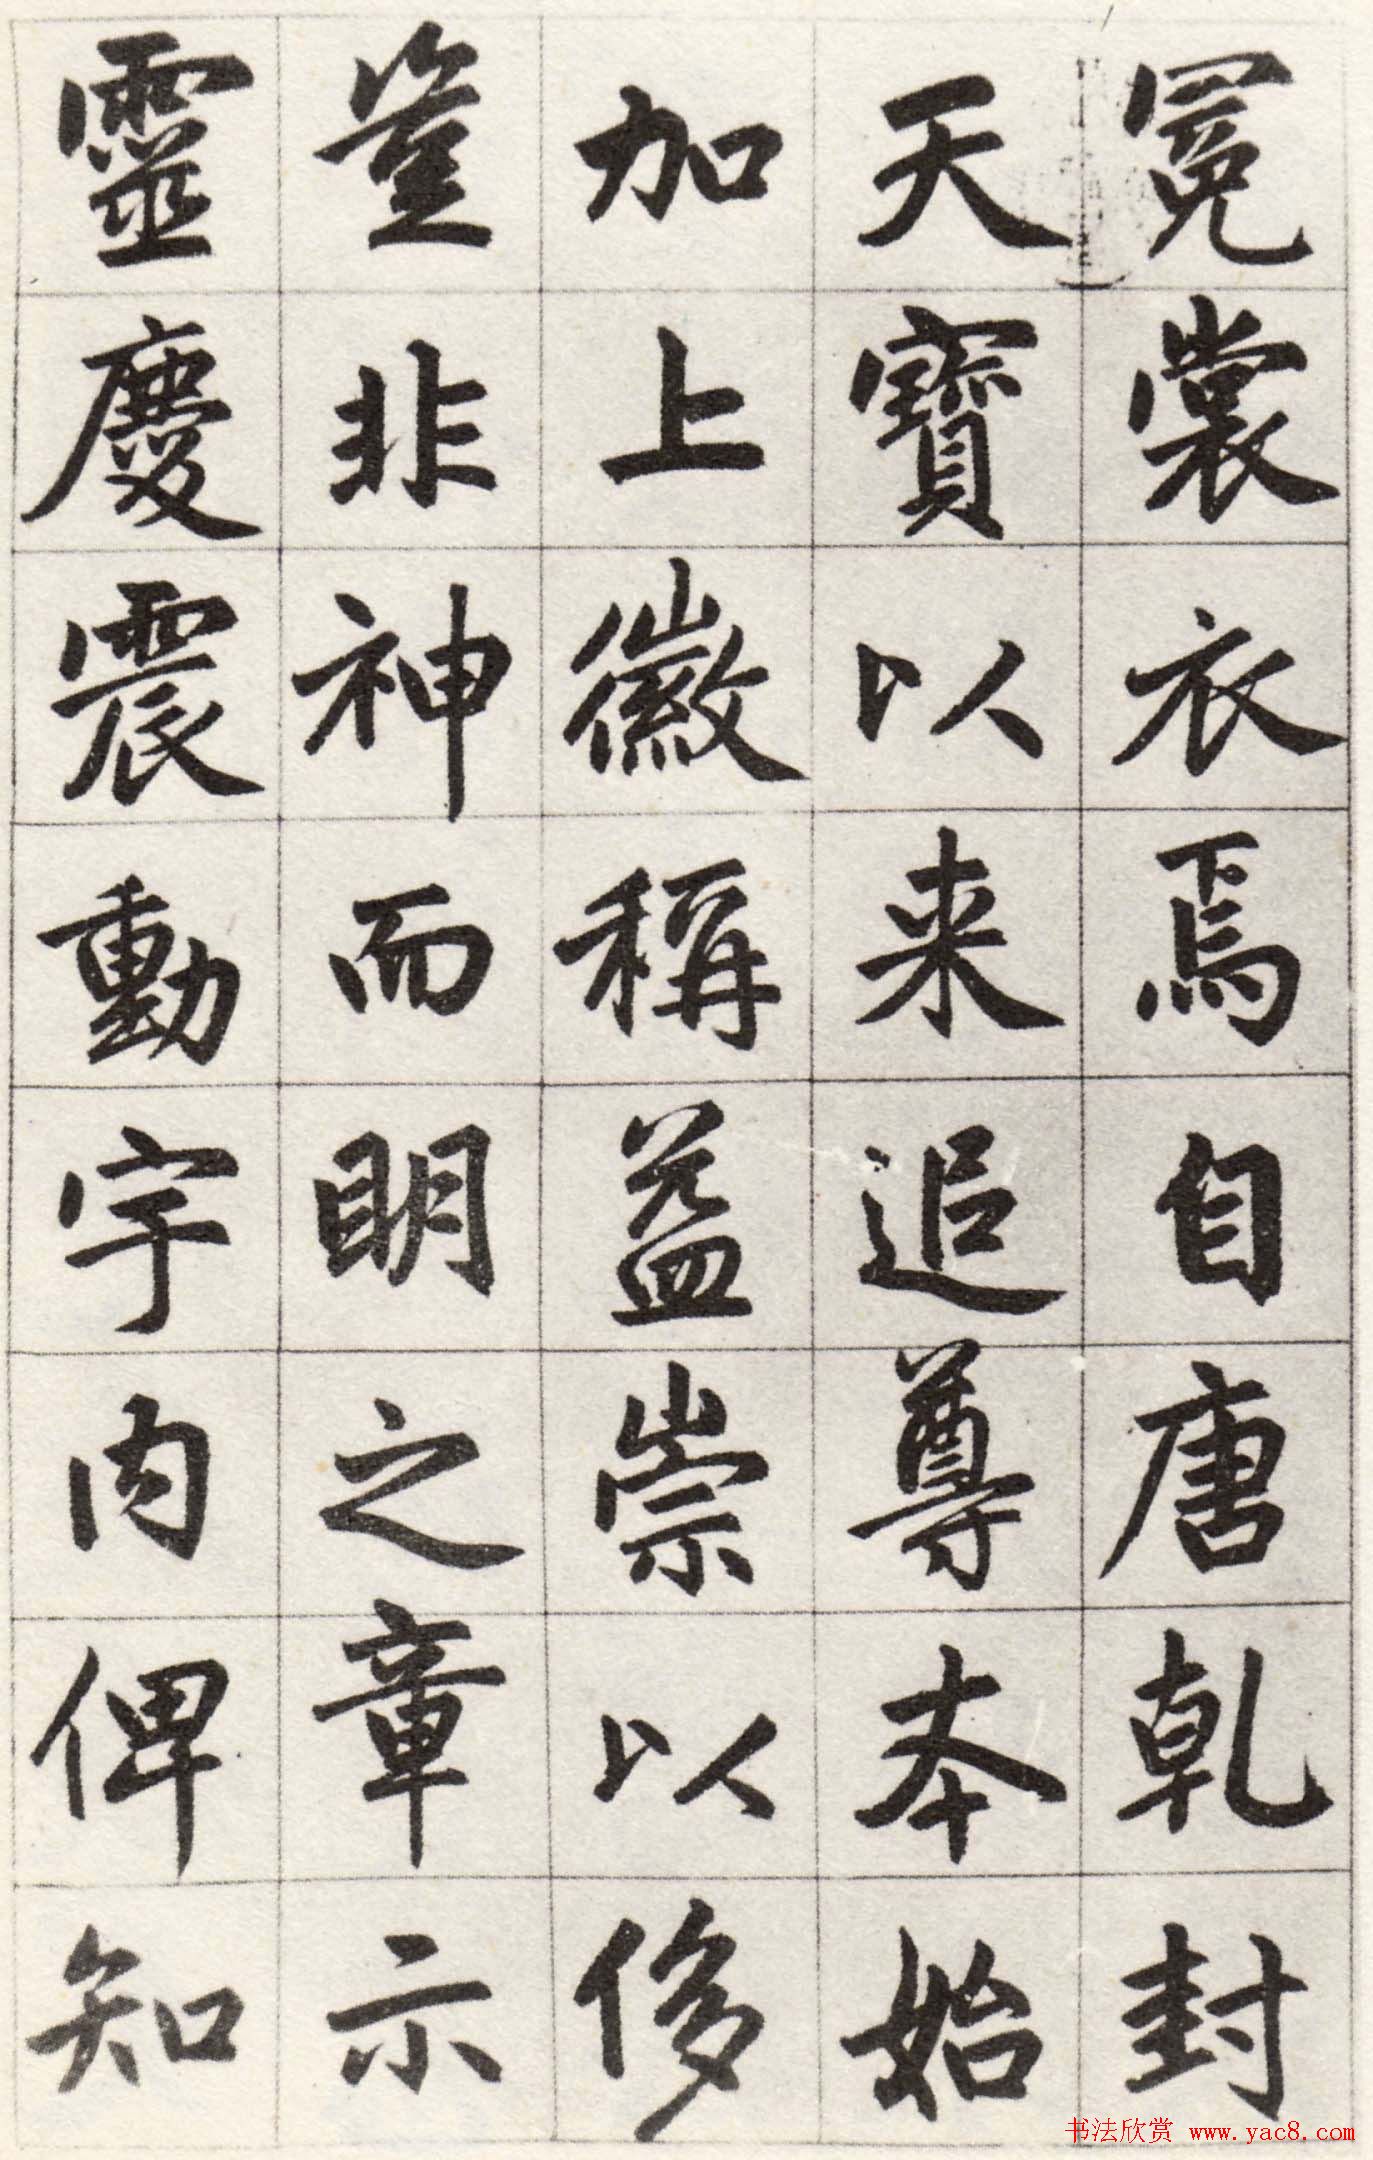 冕裳衣焉自唐乾封
天寶以来追尊本始
加上徽稱益崇以侈
豈非神而明之章示
靈慶震動宇内俾知
书法欣赏 www.yac8.com